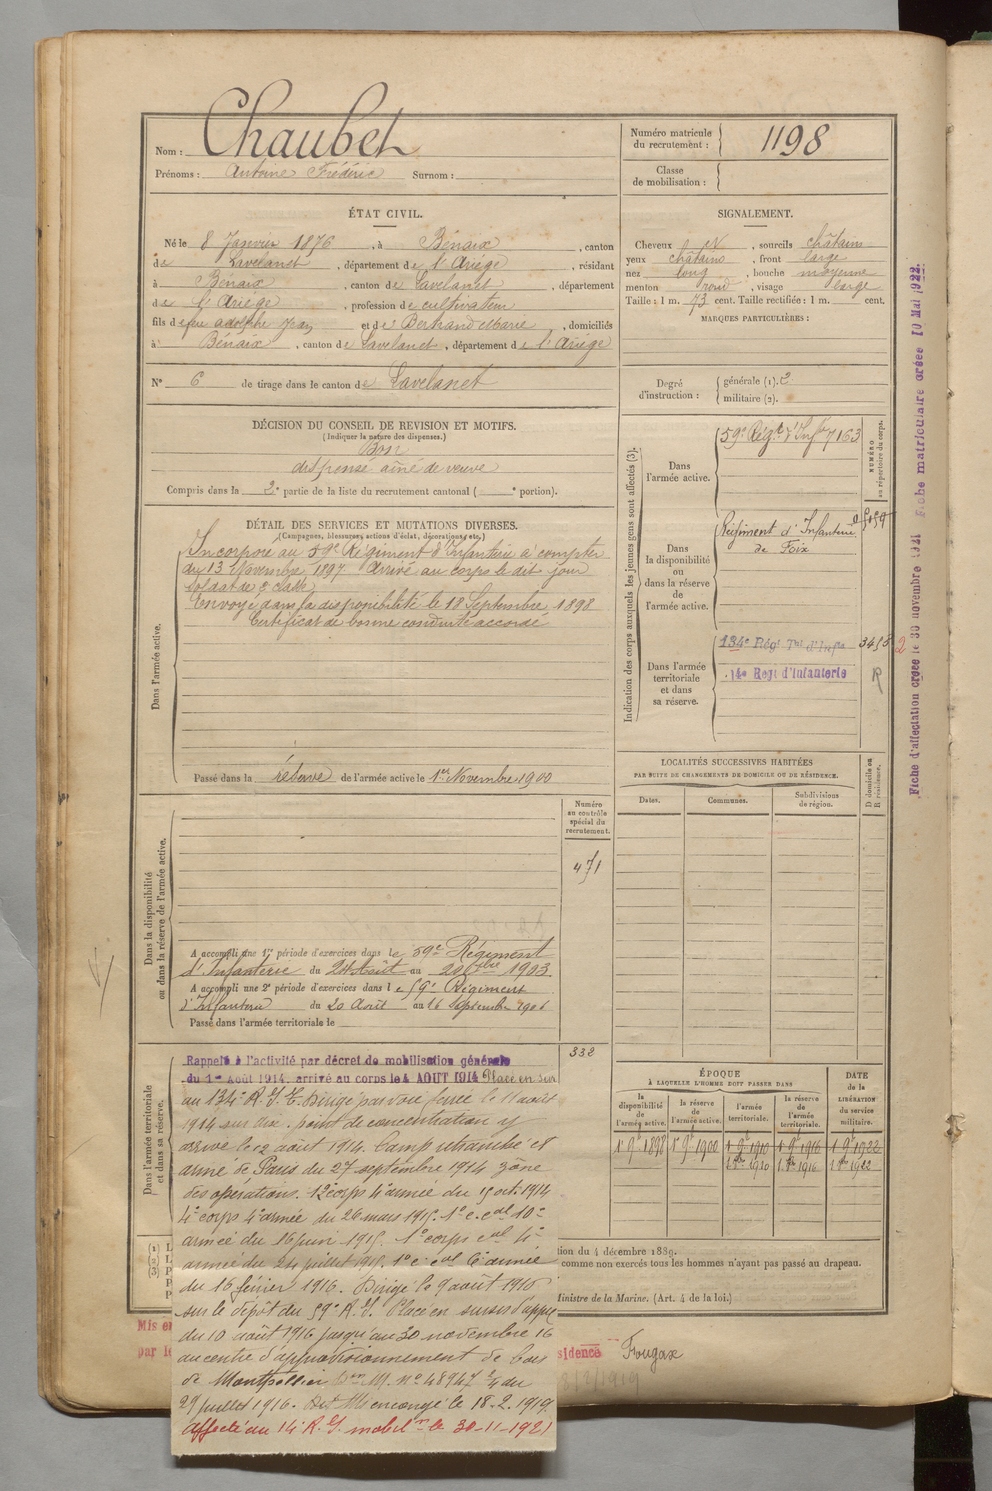 Nom : Chaubet
Prénoms : Antoine Frédéric Surnom :
Numéro matricule du recrutement : 1198
Classe de mobilisation :
ÉTAT CIVIL.
Né le 8 Janvier 1876, à Bénaix, canton
de Lavelanet, département de l'Ariège, résidant
à Bénaix, canton de Lavelanet, département
de l'Ariège, profession de cultivateur
fils de feu Adolphe Jean et de Bertrand Marie, domiciliés
à Bénaix, canton de Lavelanet, département de l'Ariège
N° 6 de tirage dans le canton de Lavelanet
SIGNALEMENT.
Cheveux , sourcils châtains
yeux châtains, front large
nez long, bouche moyenne
menton rond, visage large
Taille : 1 m. 73 cent. Taille rectifiée : 1 m. cent.
MARQUES PARTICULIÈRES :
Degré d'instruction : générale (1). 2
militaire (2).
DÉCISION DU CONSEIL DE REVISION ET MOTIFS.
(Indiquer la nature des dispenses.)
Bon
dispensé aîné de veuve
Compris dans la 2e partie de la liste du recrutement cantonal ( e portion).
DÉTAIL DES SERVICES ET MUTATIONS DIVERSES.
(Campagnes, blessures, actions d'éclat, décorations, etc.)
Dans l'armée active.
Incorporé au 59e Régiment d'Infanterie à compter
du 13 Novembre 1897 Arrivé au corps le dit jour
soldat de 2e classe
Envoyé dans la disponibilité le 18 Septembre 1898
Certificat de bonne conduite accordé
Passé dans la réserve de l'armée active le 1er Novembre 1900
Indication des corps auxquels les jeunes gens sont affectés (3).
NUMÉRO au répertoire du corps.
Dans l'armée active.
59e Régt d'Infie 7163
Dans la disponibilité ou dans la réserve de l'armée active.
Régiment d'Infanterie
de Foix
Dans l'armée territoriale et dans sa réserve.
134e Régt Tal d'Infie 3453
14e Regt d'Infanterie R
2
Fiche d'affectation créée le 30 novembre 1921 Fiche matriculaire créée 10 Mai 1922
LOCALITÉS SUCCESSIVES HABITÉES
PAR SUITE DE CHANGEMENTS DE DOMICILE OU DE RÉSIDENCE.
Dates. Communes. Subdivisions de région. D domicile ou R résidence.
Numéro au contrôle spécial du recrutement.
471
Dans la disponibilité ou dans la réserve de l'armée active.
A accompli une 1re période d'exercices dans le 59e Régiment
d'Infanterie du 24 Août au 20 7bre 1903
A accompli une 2e période d'exercices dans le 59e Régiment
d'Infanterie du 20 Août au 16 Septembre 1906
Passé dans l'armée territoriale le
Dans l'armée territoriale et dans sa réserve.
332
Rappelé à l'activité par décret de mobilisation générale
du 1er Août 1914, arrivé au corps le 4 AOUT 1914
au 134e R.I.T. Dirigé par voie ferrée le 11 août
1914 sur point de concentration y
arrivé le 12 août 1914. Camp retranché et
armé de Paris du 27 septembre 1914 zône
des opérations. corps 4e armée du oct. 1914
4e corps 4e armée du 26 mars 1915. 1e c. cal 10e
armée du 16 juin 1915. 1e corps cal 4e
armée du 24 juillet 1915. 1e c. cal 6e armée
du 16 février 1916. Dirigé le 9 août 1916
sur le dépôt du 59e R.I. Placé en sursis d'appel
du 10 août 1916 jusqu'au 30 novembre 16
au centre d'approvisionnement de bois
de Montpellier M. n° 48747 du
29 juillet 1916. en congé le 18.2.1919
affecté au 14e R.I. mobilon le 30-11-1921
ÉPOQUE
À LAQUELLE L'HOMME DOIT PASSER DANS
la disponibilité de l'armée active. la réserve de l'armée active. l'armée territoriale. la réserve de l'armée territoriale.
DATE de la LIBÉRATION du service militaire.
1 9e 1898 1 9e 1900 1 9e 1910 1 9e 1916 1 9e 1922
1910 1916 1922
tion du 4 décembre 1889.
comme non exercés tous les hommes n'ayant pas passé au drapeau.
Ministre de la Marine. (Art. 4 de la loi.)
Mis en
par le
sidence Fougax